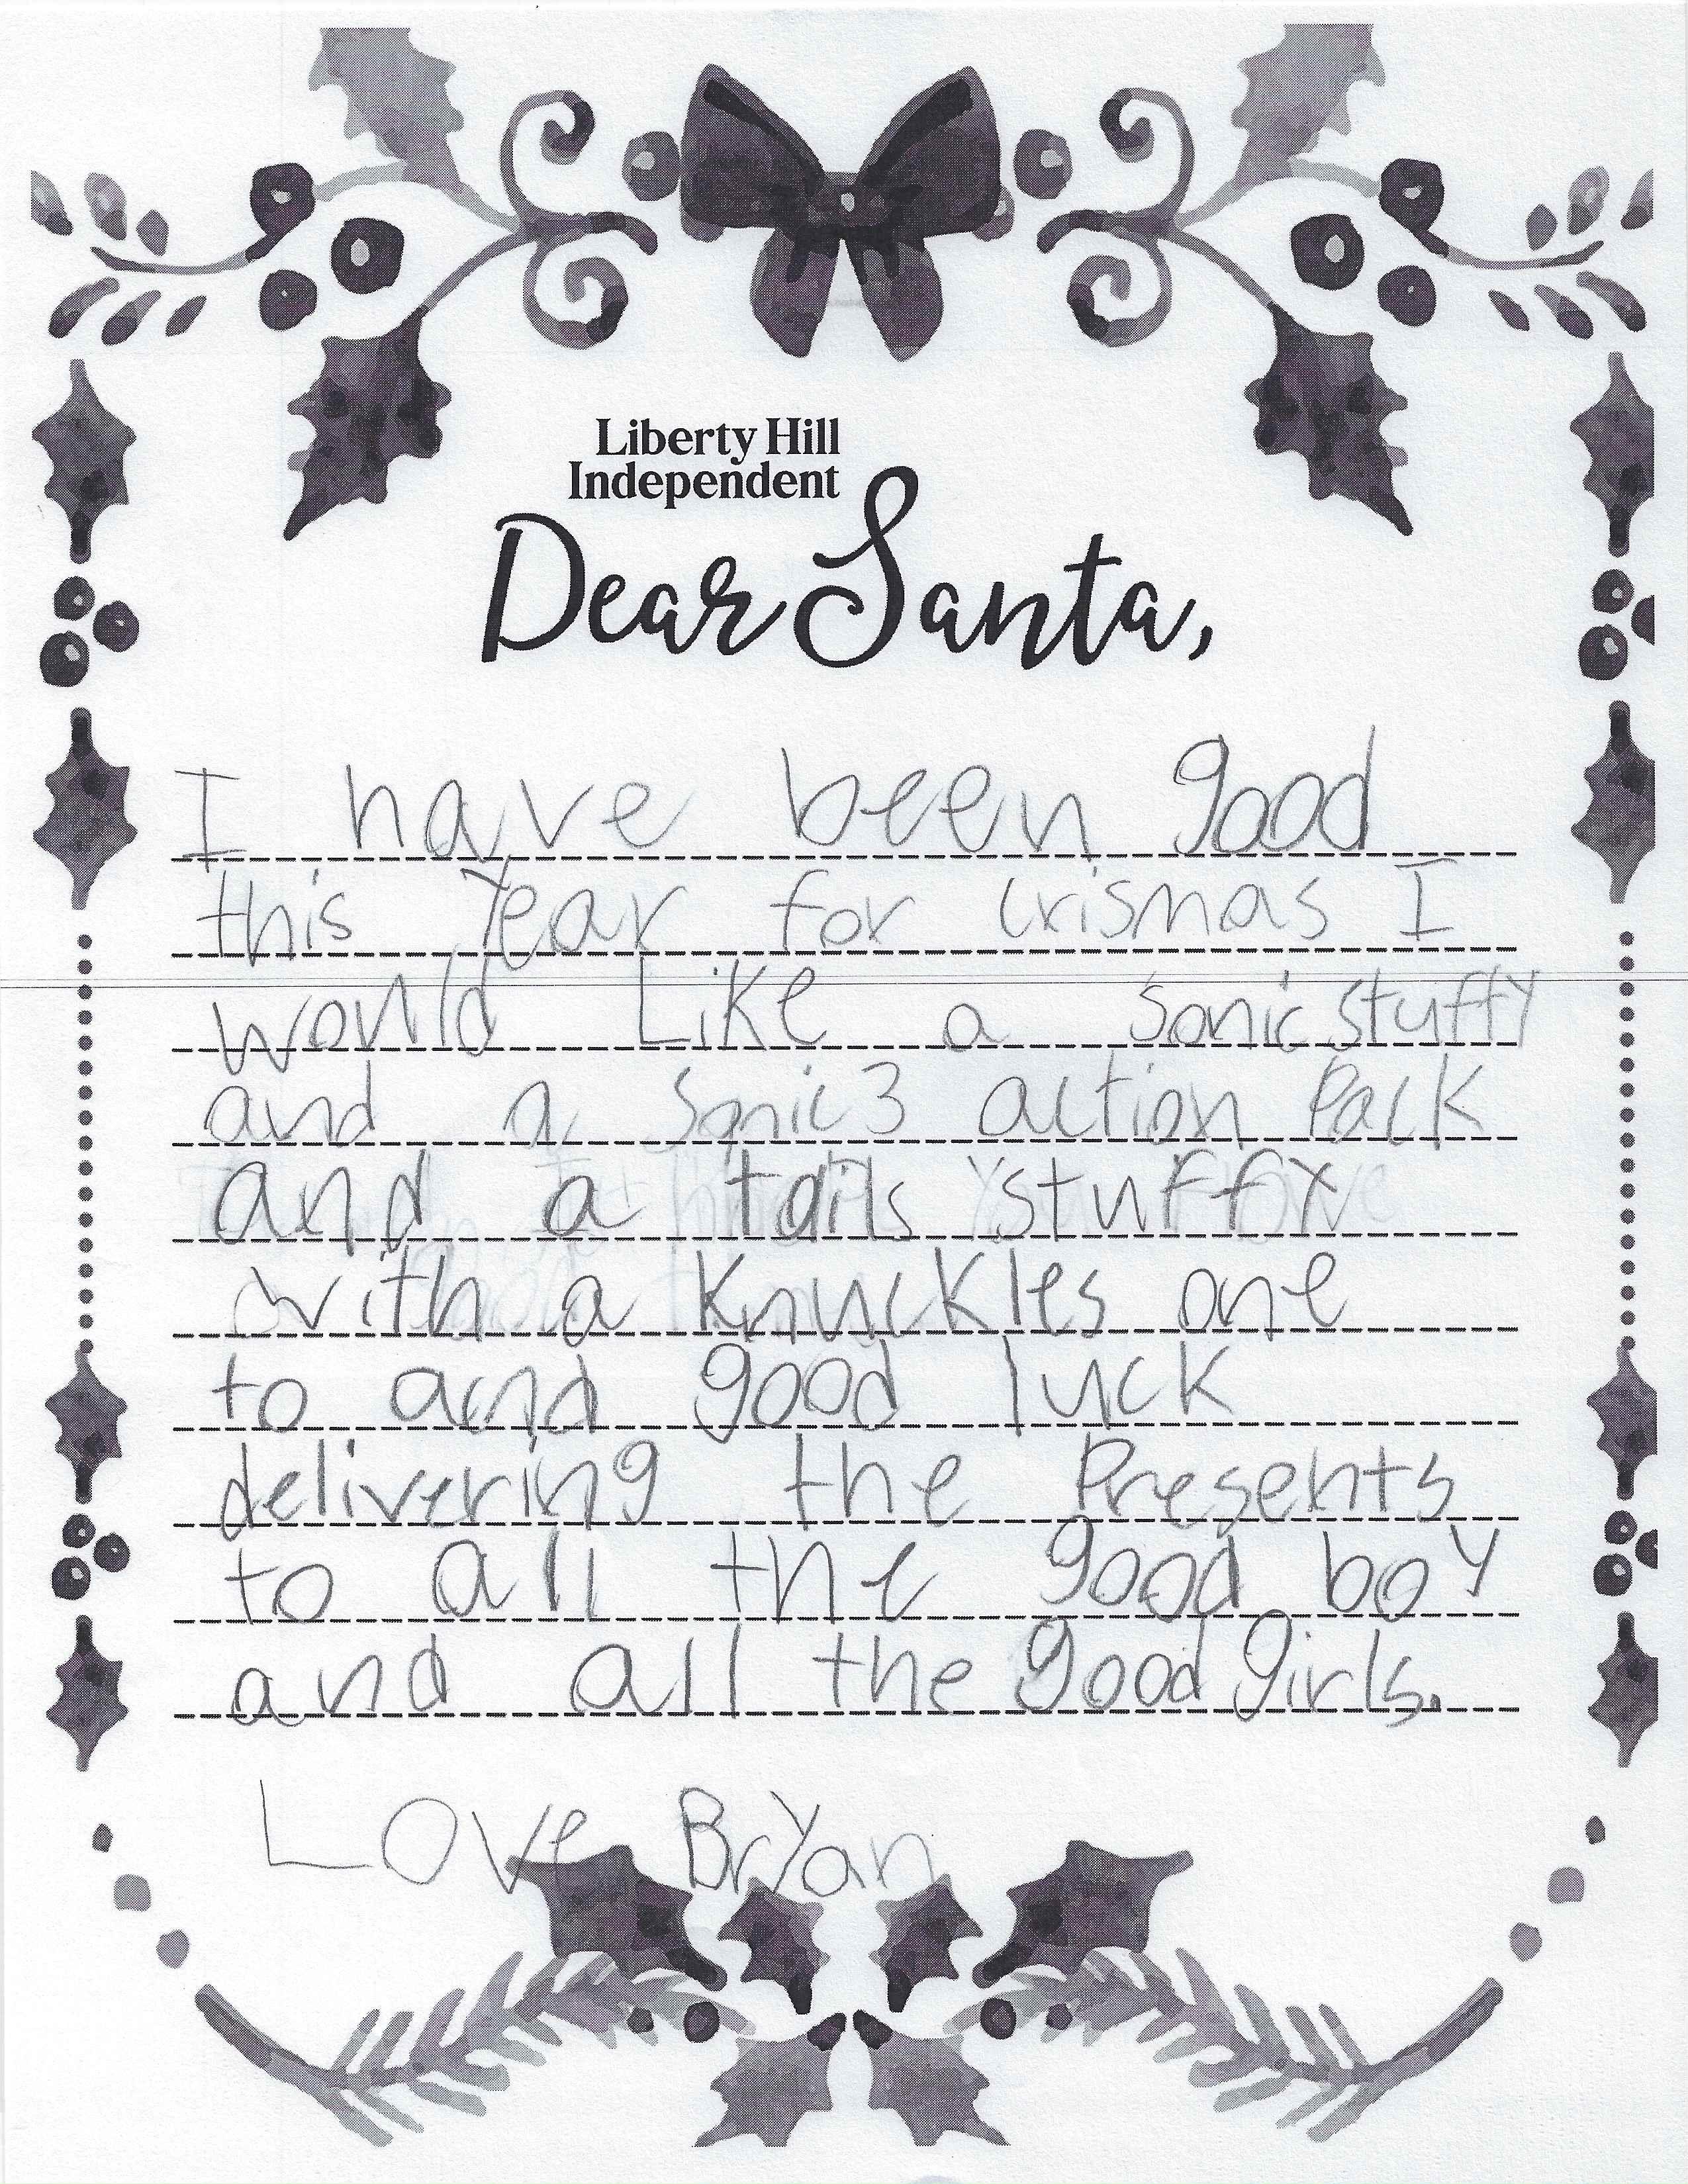 Liberty Hill
Independent
Dear Santa,
I have been good
this Year for Crismas I
would Like a Sonic stuffy
and a Sonic 3 action Pack
and a tails stuffy
with a Knuckles one
to and good luck
delivering the Presents
to all the good boy
and all the good girls.
Love Bryan